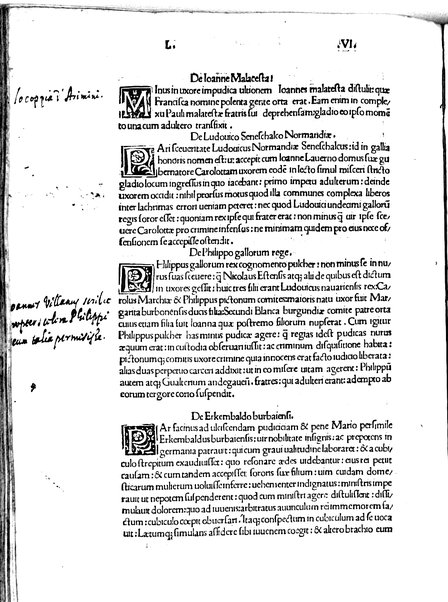 L. .VI.
De Ioanne Malatesta!
MInus in uxore impudica ultionem Ioannes malatesta distulit: quæ
Francisca nomine polenta gente orta erat. Eam enim in comple
xu Pauli malatestæ fratris sui deprehensam: gladio eo ipso momē
to una cum adultero transfixit.
De Ludouico Seneschalco Normandiæ.
PAri seueritate Ludouicus Normandiæ Seneschalcus: id in gallia
honoris nomen est: ut accepit cum Ioanne Lauerno domus suæ gu
bernatore Carolottam uxorem eodē in lecto simul misceri: stricto
gladio locum ingressus in quo iacebant: primo impetu adulterum: deinde
uxorem occidit: nihil prorsus motus quod illa communes complexa liberos
inter lachrimas errori ueniam peteret: nec quod Ludouici undecimi gallorū
regis soror esset: quoniam rex ipse qui frater erat: non minus q̄ uir ipse sce
uere Carolottæ pro crimine infensus: ne minimam quidem pro eius nece of/
fensionem se accepisse ostendit.
De Philippo gallorum rege.
PHilippus gallorum rex cognomento pulcher: non minus se in nu
rus suas seuere: q̄ Nicolaus Estensis atq; alii de quibus est dictum
in uxores gessit: huic tres filii erant Ludouicus nauariensis rex Ca
rolus Marchiæ & Philippus pictonum comites maioris natu uxor fuit Mar
garita burbonensis ducis filia: Secundi Blanca burgundiæ comite patre orta
cuius etiam filia fuit Ioanna quæ postremo filiorum nupserat. Cum igitur
Philippus pulcher has minus pudicæ agere: q̄ regias idest pudicas nurus
æquum erat: in custodia obseruari iussit: ac criminum disquisitione habita:
pictonum q; comitis uxore crimine quia innocens erat facto iudicio liberata:
alias duas perpetuo carceri addixit: ut in eo misere uitam agerent: Philippū
autem atq; Gualterium andegauen. fratres: qui adulteri erant: adempto ab
eorum tergore corio suspendit.
De Erkembaldo burbaiensi.
PAr facinus ad ulciscendam pudiciciam & pene Mario persimile
Erkembaldus burbaiensis: uir nobilitate insignis: ac prepotens in
germania patraut: qui cum graui ualitudine laboraret: & a cubi/
culo strepitum exaudiisset: quo resonare ædes uidebantur: eius rei petiit
causam: & cum tandem accepisset sororis suæ filium: uim cuidam dome/
sticarum mulierum uoluisse inferre: uehementer indignatus: ministris impe
rauit ut nepotem suspenderent: quod cum ministri agere distulissent: dissi/
mulauit dolorem: quo ad iuuenis arbitratus auunculum rei immemorem fa/
ctum: cubiculo cœpit obuersari. Itaq; conspectum in cubiculum ad se uoca
uit: Lætumq; simulans assidere sibi iuuenem coegit: & altero brachio eum